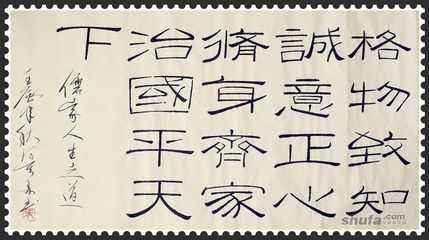 格物致知
誠意正心
脩身齊家
治國平天
下
儒家人生之道
shufa.com